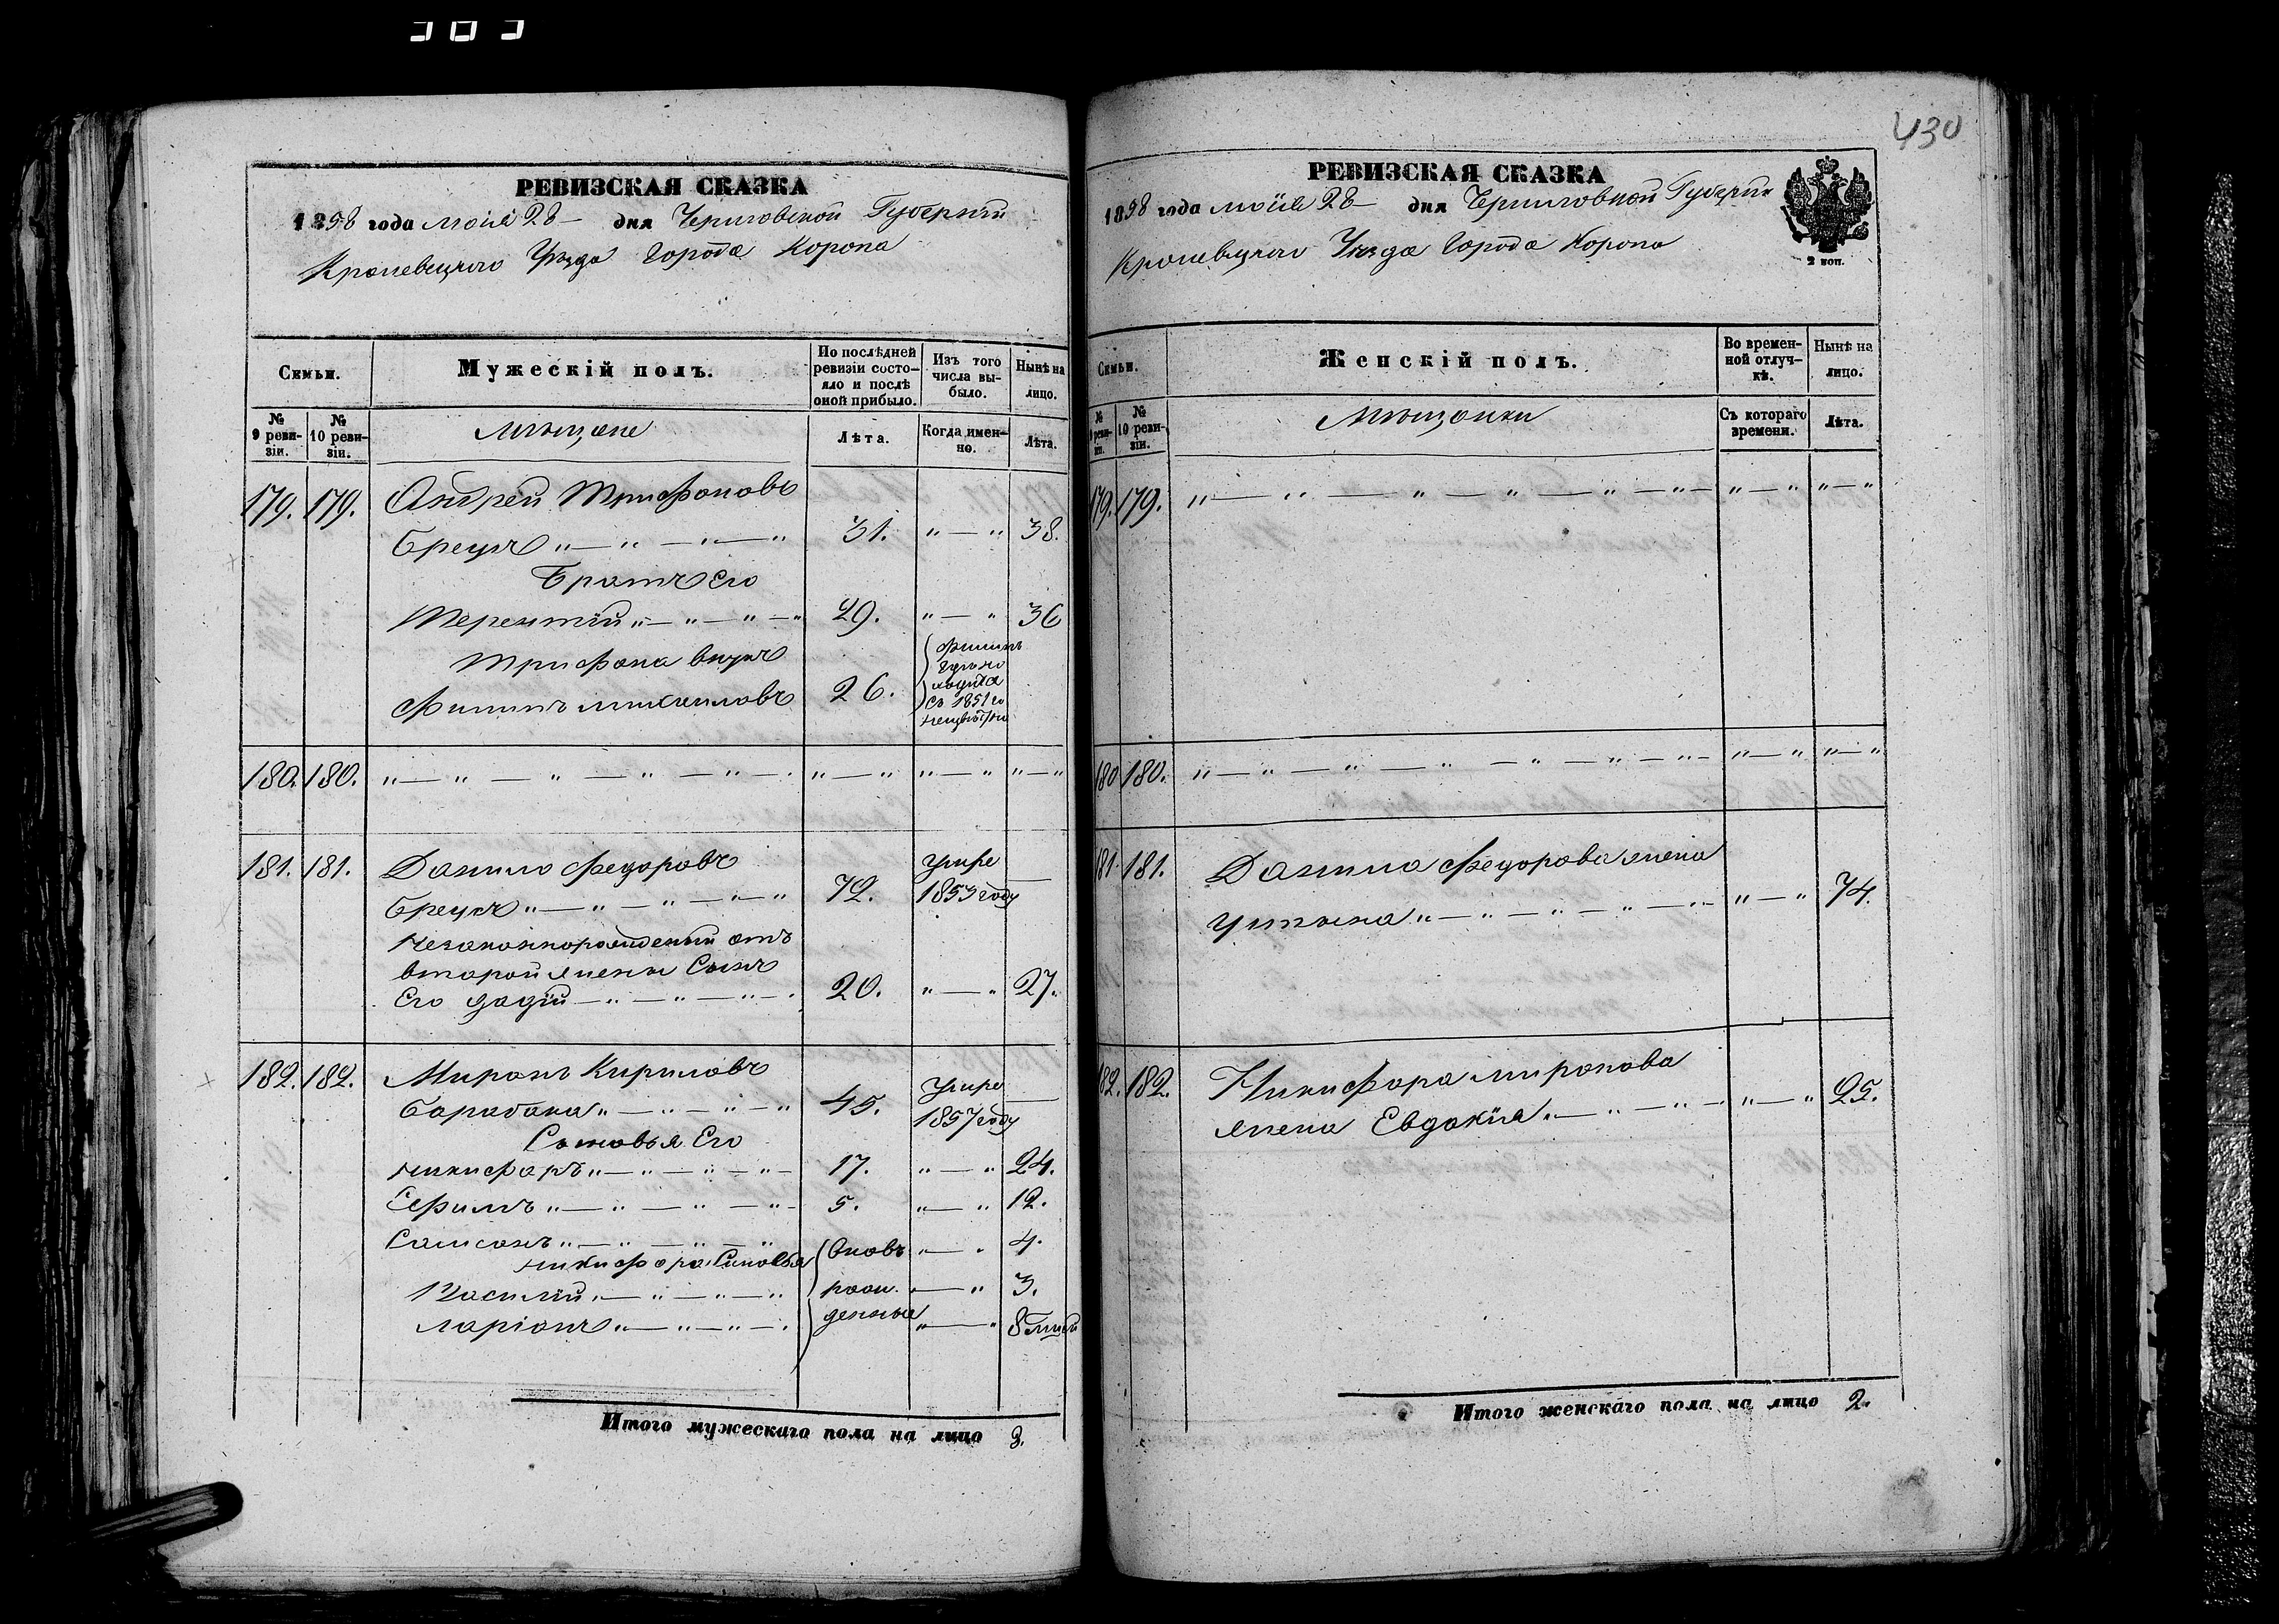 430
РЕВИЗСКАЯ СКАЗКА
1858 года маія 28 — дня Черниговской Губерніи
Кролевецкаго Уѣзда Города Коропа
Семьи.
Мужескій полъ.
По послѣдней ревизіи состояло и послѣ оной прибыло.
Изъ того числа выбыло.
Нынѣ на лицо.
№ 9 ревизіи.
№ 10 ревизіи.
Мѣщане
Лѣта.
Когда именно.
Лѣта.
179. 179. Андрей Трифоновъ
Брецкъ " — " — " — " 31. " — " 38.
Братъ его
Терентій " — " — " — " 29. " — " 36
Трифона внукъ
Филипъ Михайловъ 26.
Филипъ
съ 1851 го
180. 180. " — " — " — " — " — " — " " — " " — "
181. 181. Данило Федоровъ Умре
Брецкъ " — " — " — " — " 72. 1853 году —
Незаконнорожденный отъ
второй жены Сынъ
Его — " — " — " — " 20. " — " 27.
182. 182. Миронъ Кириловъ Умре
Барабана " — " — " — " 45. 1857 году —
Сыновья Его
Никифоръ " — " — " — " — 17. " — " 24.
Ефимъ " — " — " — " — 5. " — " 12.
Самсонъ " — " — " — " Вновь " — " 4.
Никифора Сыновья
Василій " — " — " — " рож- " — " 3.
Ларіонъ " — " — " — " денные " — " 8
Итого мужескаго пола на лицо
РЕВИЗСКАЯ СКАЗКА
1858 года маія 28 — дня Черниговской Губерніи
Кролевецкаго Уѣзда Города Коропа
2 коп.
Семьи.
Женскій полъ.
Во временной отлучкѣ.
Нынѣ на лицо.
№ 9 ревизіи.
№ 10 ревизіи.
Мѣщанки
Съ котораго времени.
Лѣта.
179. 179. " — " — " — " — " — " — " — " " — "
180 180. " — " — " — " — " — " — " — " " — "
181. 181. Данила Федорова жена
Ульяна " — " — " — " — " — " — " 74.
182. 182. Никифора Миронова
жена Евдокія " — " — " — " — " 25.
Итого женскаго пола на лицо 2.